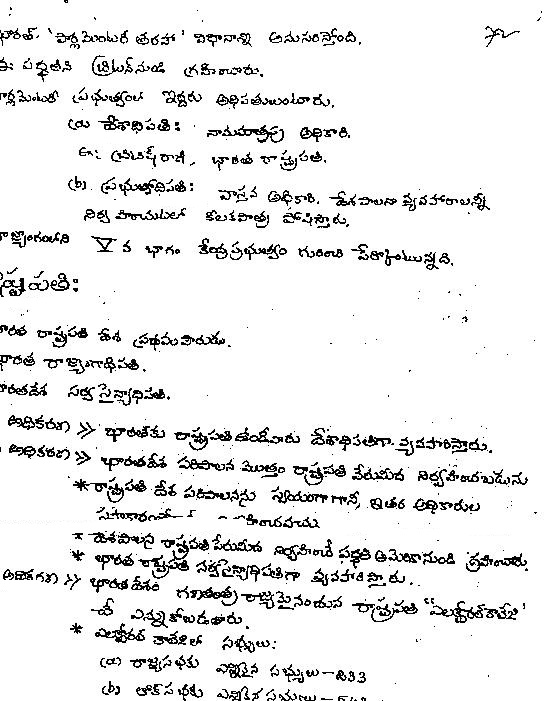 భారత్, 'పార్లమెంటరీ తరహా' విధానాన్ని అనుసరిస్తోంది.
ఈ పద్ధతిని బ్రిటన్‌నుండి గ్రహించారు.
పార్లమెంటరీ ప్రభుత్వంలో ఇద్దరు అధిపతులుంటారు.
(a) దేశాధిపతి : నామమాత్రపు అధికారి.
ఉ: బ్రిటిష్ రాణి, భారత రాష్ట్రపతి.
(b) ప్రభుత్వాధిపతి : వాస్తవ అధికారి. దేశపాలనా వ్యవహారాలన్నీ
నిర్వహించుటలో కీలకపాత్ర పోషిస్తారు.
రాజ్యాంగంలోని V వ భాగం కేంద్రప్రభుత్వం గురించి పేర్కొంటున్నది.
రాష్ట్రపతి:
భారత రాష్ట్రపతి దేశ ప్రథమపౌరుడు.
భారత రాజ్యాంగాధిపతి.
భారతదేశ సర్వసైన్యాధిపతి.
అధికరణ >> భారత్‌కు రాష్ట్రపతి ఉండేవారు దేశాధిపతిగా వ్యవహరిస్తారు.
అధికరణ >> భారతదేశ పరిపాలన మొత్తం రాష్ట్రపతి పేరుమీద నిర్వహించబడును
* రాష్ట్రపతి దేశ పరిపాలనను స్వయంగా గానీ, ఇతర అధికారుల
సహకారంతో
* దేశపాలన రాష్ట్రపతి పేరుమీద నిర్వహించే పద్ధతి అమెరికానుండి గ్రహించారు.
* భారత రాష్ట్రపతి సర్వసైన్యాధిపతిగా వ్యవహరిస్తారు.
అధికరణ >> భారతదేశం గణతంత్ర రాజ్యమైనందున రాష్ట్రపతి "ఎలక్టోరల్‌కాలేజి"
చే ఎన్నుకోబడతారు.
* ఎలక్టోరల్ కాలేజిలో సభ్యులు:
(a) రాజ్యసభకు ఎన్నికైన సభ్యులు - 233
(b) లోక్‌సభకు ఎన్నికైన సభ్యులు -